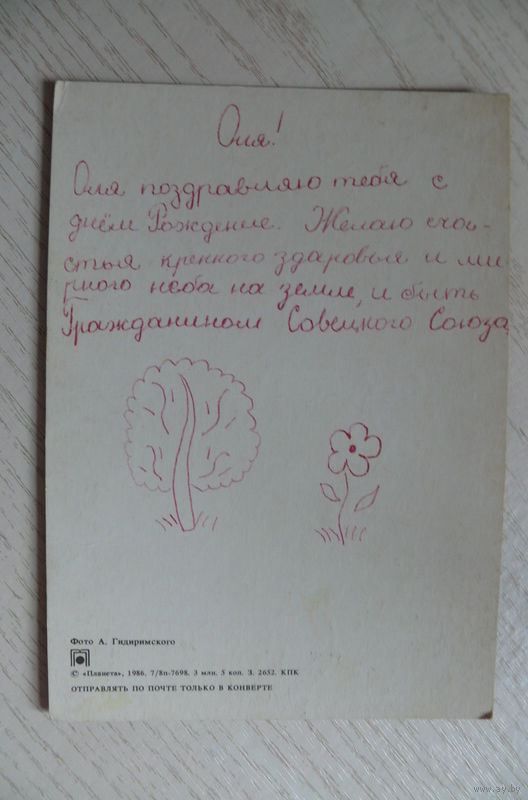 Оля!
Оля поздравляю тебя с
днём Рождение. Желаю счас-
стья крепкого здаровья и ми
рного неба на земле, и быть
Гражданином Совецкого Союза
Фото А. Гидиримского
© «Планета», 1986. 7/8п-7698. 3 млн. 5 коп. З. 2652. КПК
ОТПРАВЛЯТЬ ПО ПОЧТЕ ТОЛЬКО В КОНВЕРТЕ
www.ay.by